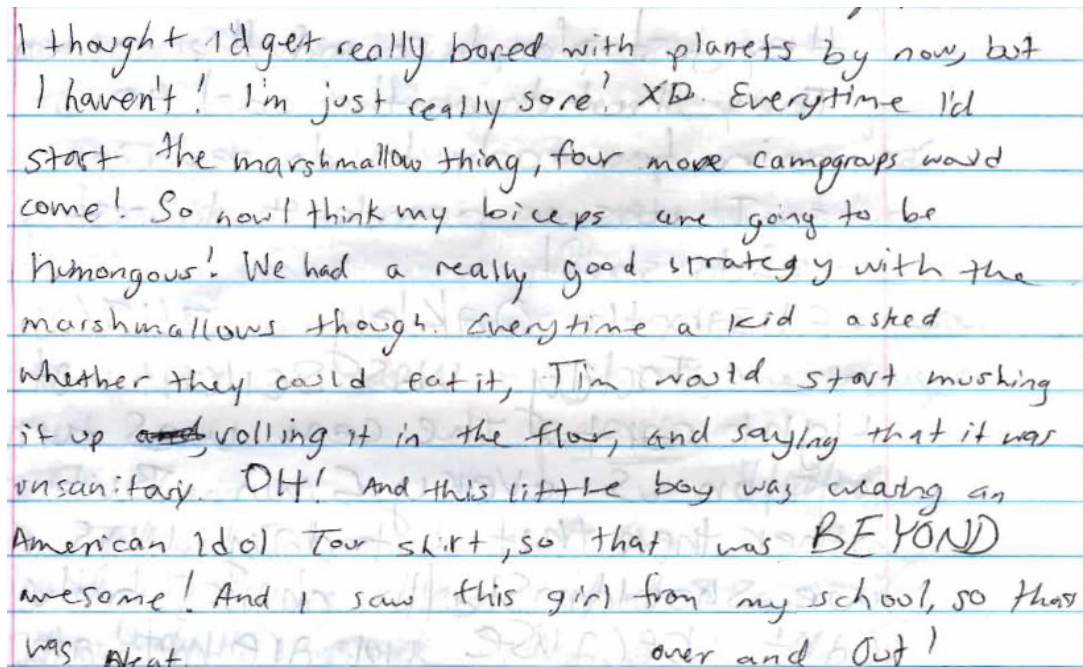 I thought I'd get really bored with planets by now, but
I haven't! I'm just really sore! XD. Everytime I'd
start the marshmallow thing, four more campgroups would
come! So now I think my biceps are going to be
humongous! We had a really good strategy with the
marshmallows though. Everytime a kid asked
whether they could eat it, Tim would start mushing
it up and, rolling it in the floor, and saying that it was
unsanitary. OH! And this little boy was wearing an
American Idol Tour shirt, so that was BEYOND
awesome! And I saw this girl from my school, so that
was neat. over and out!